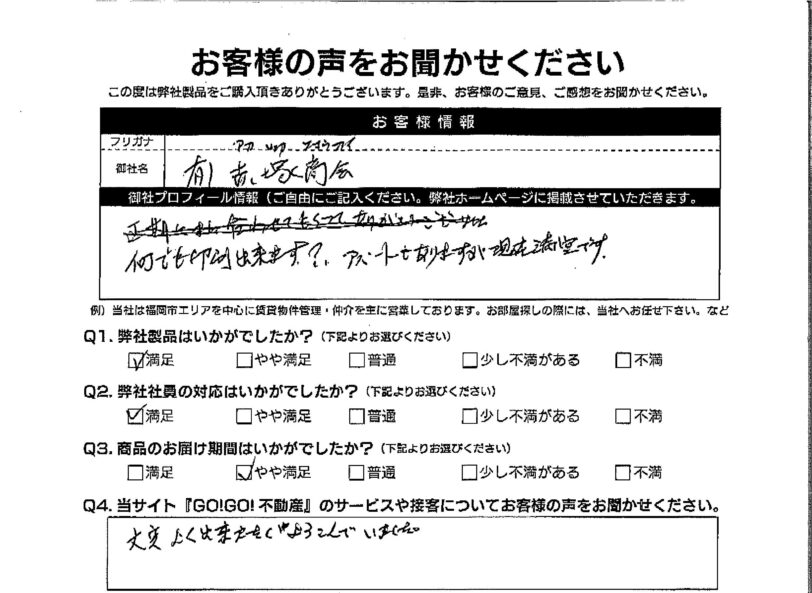 お客様の声をお聞かせください
この度は弊社製品をご購入頂きありがとうございます。是非、お客様のご意見、ご感想をお聞かせください。
お客様情報
フリガナ
御社名 有) 商会
御社プロフィール情報（ご自由にご記入ください。弊社ホームページに掲載させていただきます。
何でも印刷出来ます?、アパートもありますが現在満室です。
例）当社は福岡市エリアを中心に賃貸物件管理・仲介を主に営業しております。お部屋探しの際には、当社へお任せ下さい。など
Q1. 弊社製品はいかがでしたか？（下記よりお選びください）
満足 やや満足 普通 少し不満がある 不満
Q2. 弊社社員の対応はいかがでしたか？（下記よりお選びください）
満足 やや満足 普通 少し不満がある 不満
Q3. 商品のお届け期間はいかがでしたか？（下記よりお選びください）
満足 やや満足 普通 少し不満がある 不満
Q4. 当サイト『GO!GO! 不動産』のサービスや接客についてお客様の声をお聞かせください。
大変よく出来